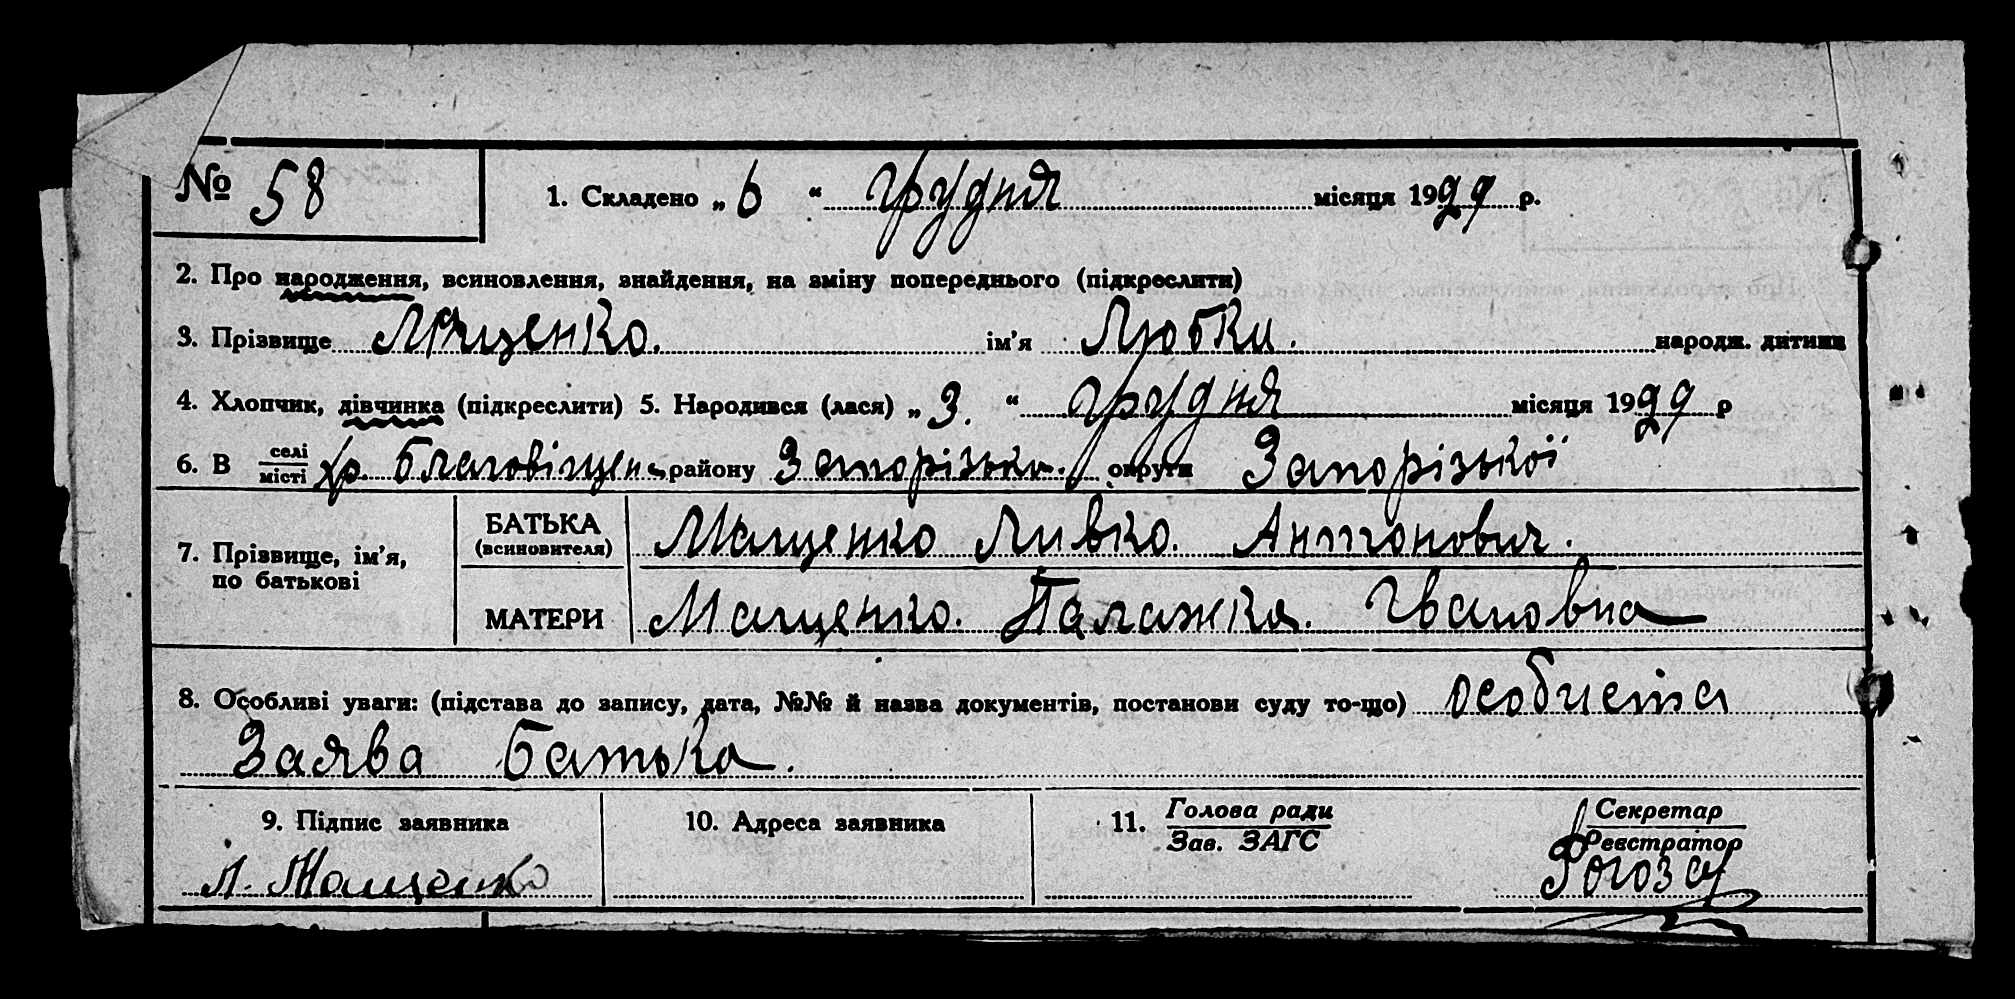 № 58 1. Складено „ 6 “ грудня місяця 1929 р.
2. Про народження, всиновлення, знайдення, на зміну попереднього (підкреслити)
3. Прізвище Мащенко. ім'я Любки. народж. дитини
4. Хлопчик, дівчинка (підкреслити) 5. Народився (лася) „ 3. “ грудня місяця 1929 р
6. В селі місті хр. Благовіщен. району Запорізьк. округи Запорізької
7. Прізвище, ім'я, по батькові
БАТЬКА (всиновителя) Мащенко Ливко. Антонович.
МАТЕРИ Мащенко. Палажка. Івановна
8. Особливі уваги: (підстава до запису, дата, №№ й назва документів, постанови суду то-що) особиста
Заява Батька.
9. Підпис заявника 10. Адреса заявника 11. Голова ради Зав. ЗАГС Секретар Реєстратор
Л. Мащенко Рогоза